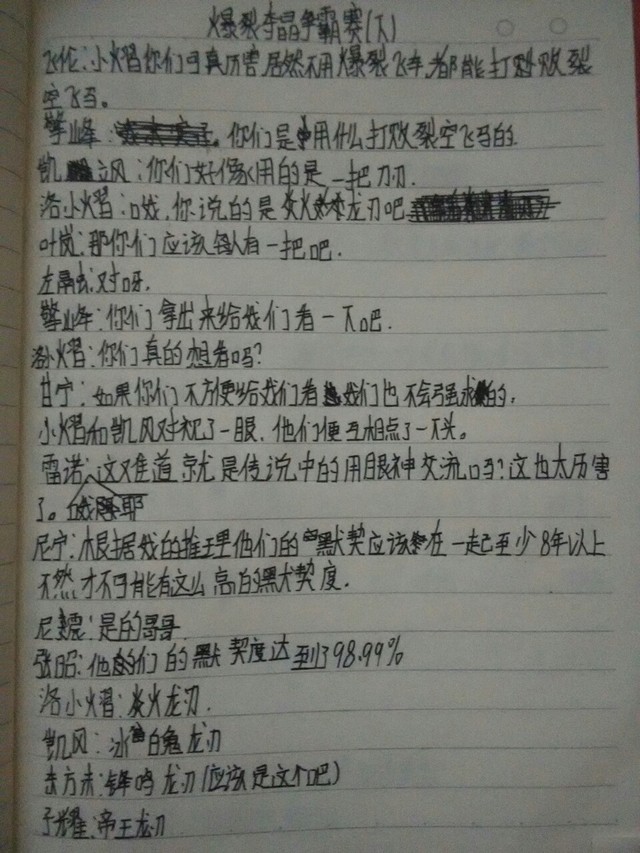 爆裂李晶争霸赛(下)
飞伦:小熠你们可真厉害居然不用爆裂飞车都能打败裂
空飞马。
擎峰:你们是用什么打败裂空飞马的.
凯风:你们好像用的是一把刀刃.
洛小熠:哦,你说的是炎火龙刃吧
叶岚:那你们应该每人有一把吧.
对呀.
擎峰:你们拿出来给我们看一下吧.
洛小熠:你们真的想看吗?
甘宁:如果你们不方便给我们看我们也不会强求的.
小熠和凯风对视了一眼,他们便互相点了一下头。
雷诺:这难道就是传说中的用眼神交流吗?这也太厉害
了。
尼宁:根据我的推理他们的默契应该在一起至少8年以上
不然才不可能有这么高的默契度.
是的哥哥.
张昭:他们的默契度达到了98.99%
洛小熠:炎火龙刃.
凯风:冰白龙刃
东方末:锋鸣龙刃(应该是这个吧)
子耀:帝王龙刃